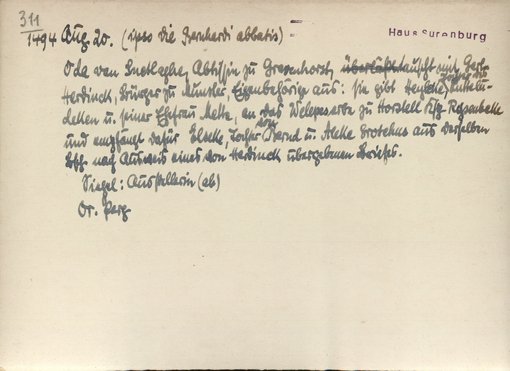 311
1494 Aug 20. (ipso die Bernhardi abbatis) –
Haus Surenburg
Oda van Snetlaghe, Äbtissin zu Gravenhorst, überläßt tauscht mit Gerh
Herdinck, Bürger zu Münster, Eigenbehörige aus: Sie gibt Tochter zu
detten u. seiner Ehefrau Mette, an das Welpesarve zu Horstell Ksp.
und empfängt dafür Elseke, Tochter von Bernd u. Aleke Grotehus aus derselben
Bsch nach Ausweis eines von Herdinck übergebenen Briefes.
Siegel: Ausstellerin (ab)
Or. Perg